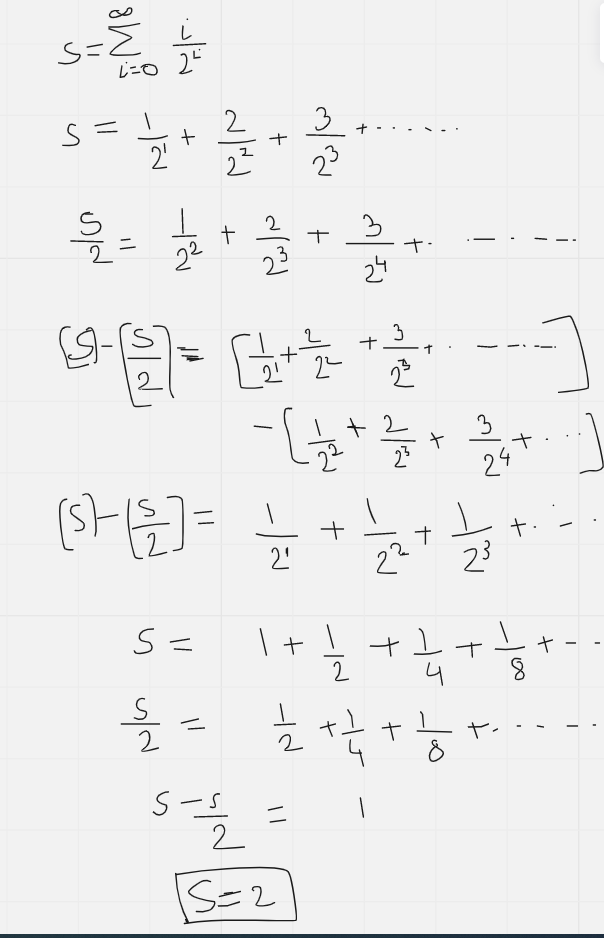 S = ∑_{i=0}^{∞} i/2^i
S = 1/2^1 + 2/2^2 + 3/2^3 + .......
S/2 = 1/2^2 + 2/2^3 + 3/2^4 + .......
[S] - [S/2] = [1/2^1 + 2/2^2 + 3/2^3 + .......]
- [1/2^2 + 2/2^3 + 3/2^4 + ....]
[S] - [S/2] = 1/2^1 + 1/2^2 + 1/2^3 + .....
S = 1 + 1/2 + 1/4 + 1/8 + ---
S/2 = 1/2 + 1/4 + 1/8 + .-----
S - s/2 = 1
S = 2